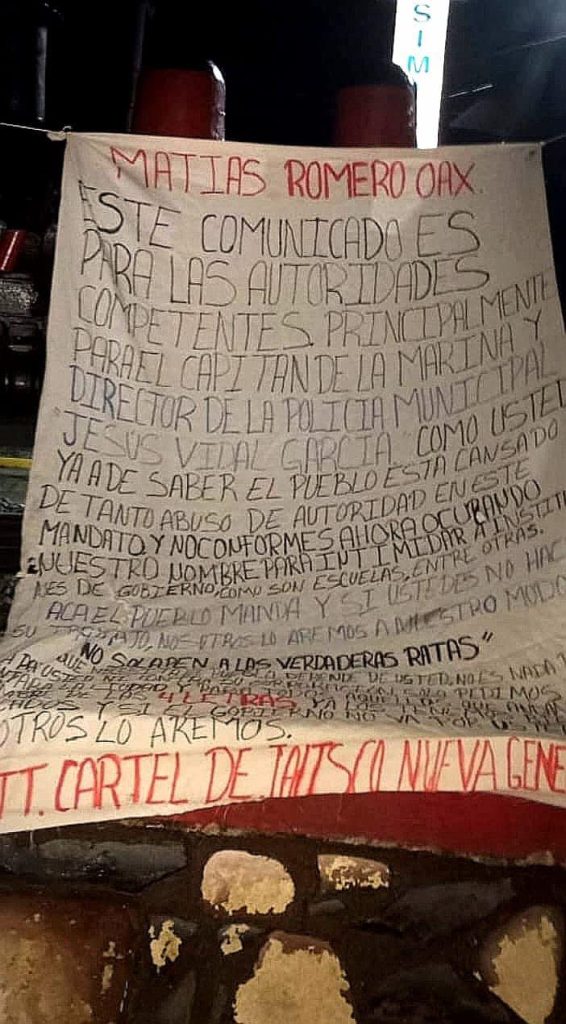 SIM
MATIAS ROMERO OAX.
ESTE COMUNICADO ES
PARA LAS AUTORIDADES
COMPETENTES. PRINCIPALMENTE
PARA EL CAPITAN DE LA MARINA Y
DIRECTOR DE LA POLICIA MUNICIPAL
JESÚS VIDAL GARCIA. COMO USTED
YA A DE SABER EL PUEBLO ESTA CANSADO
DE TANTO ABUSO DE AUTORIDAD EN ESTE
MANDATO. Y NO CONFORMES AHORA OCUPANDO
NUESTRO NOMBRE PARA INTIMIDAR A INSTITU
NES DE GOBIERNO, COMO SON ESCUELAS, ENTRE OTRAS.
ACA EL PUEBLO MANDA Y SI USTEDES NO HAC
SU TRABAJO, NOSOTROS LO AREMOS A NUESTRO MODO
"NO SOLAPEN A LAS VERDADERAS RATAS"
DEPENDE DE USTED, NO ES NADA
SOLO PEDIMOS
4 LETRAS
Y SI
OTROS LO AREMOS.
TT. CARTEL DE JALISCO NUEVA GENE